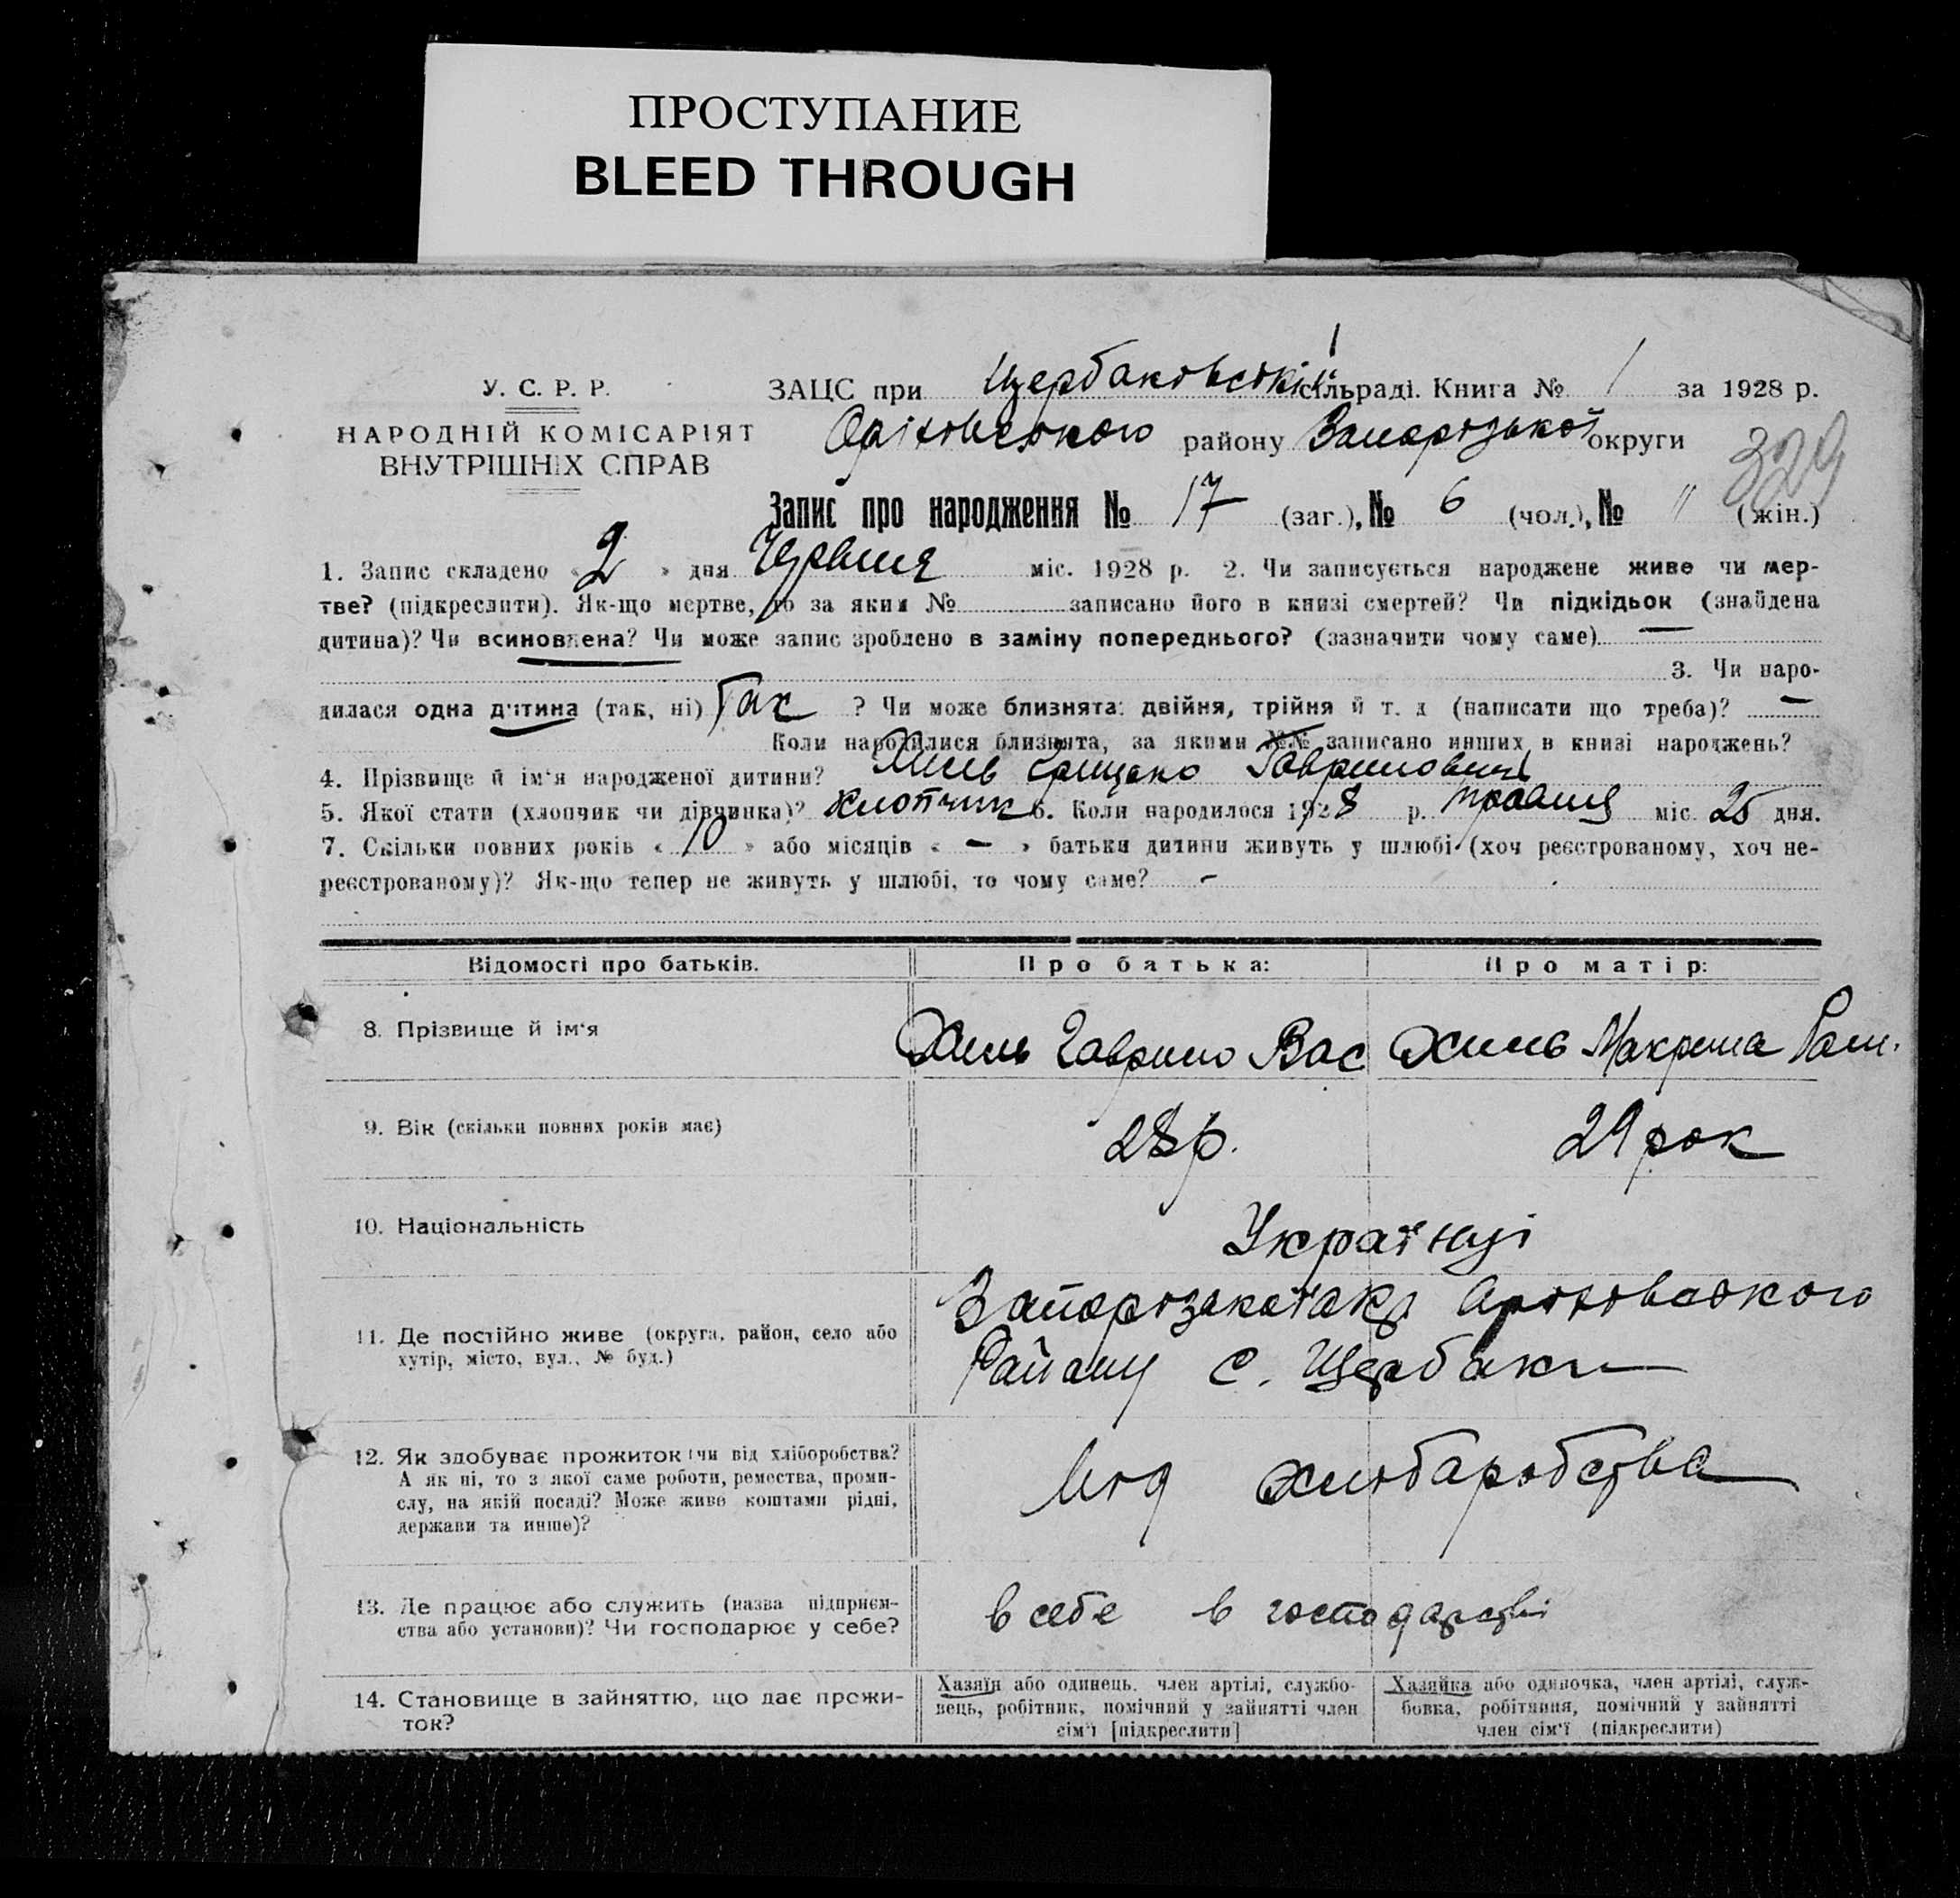 ПРОСТУПАНИЕ
BLEED THROUGH
У. С. Р. Р.
НАРОДНІЙ КОМІСАРІЯТ
ВНУТРІШНІХ СПРАВ
ЗАЦС при Щербаковській сільраді. Книга № 1 за 1928 р.
Оріховського району Запорозької округи
329
Запис про народження № 17 (заг.), № 6 (чол.), № " (жін.)
1. Запис складено « 2 » дня Червня міс. 1928 р. 2. Чи записується народжене живе чи мер-
тве? (підкреслити). Як-що мертве, то за яким № записано його в книзі смертей? Чи підкідьок (знайдена
дитина)? Чи всиновлена? Чи може запис зроблено в заміну попереднього? (зазначити чому саме) —
3. Чи наро-
дилася одна дитина (так, ні) Так ? Чи може близнята: двійня, трійня й т. д (написати що треба)? —
Коли народилися близнята, за якими №№ записано инших в книзі народжень?
4. Прізвище й ім'я народженої дитини? Хиль Грицько Гаврилович
5. Якої стати (хлопчик чи дівчинка)? хлопчик 6. Коли народилося 1928 р. травня міс. 25 дня.
7. Скільки повних років « 10 » або місяців « — » батьки дитини живуть у шлюбі (хоч реєстрованому, хоч не-
реєстрованому)? Як-що тепер не живуть у шлюбі, то чому саме? —
Відомості про батьків. Про батька: Про матір:
8. Прізвище й ім'я Хиль Гаврило Вас Хиль Макрина
9. Вік (скільки повних років має) 28 р. 29 рок
10. Національність Українці
11. Де постійно живе (округа, район, село або
хутір, місто, вул., № буд.)
Району с. Щербаки
12. Як здобуває прожиток (чи від хліборобства?
А як ні, то з якої саме роботи, ремества, проми-
слу, на якій посаді? Може живе коштами рідні,
держави та инше)?
хліобаробства
13. Де працює або служить (назва підприєм-
ства або установи)? Чи господарює у себе?
в себе в господарстві
14. Становище в зайняттю, що дає прожи-
ток?
Хазяїн або одинець, член артілі, службо-
вець, робітник, помічний у зайнятті член
сім'ї [підкреслити]
Хазяйка або одиночка, член артілі, служ-
бовка, робітниця, помічний у зайнятті
член сім'ї (підкреслити)